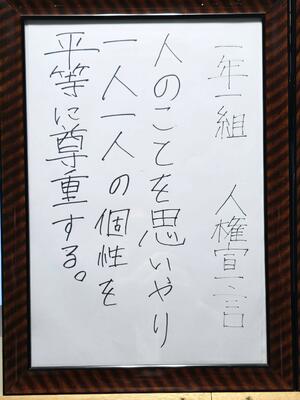 一年一組　人権宣言
人のことを思いやり
一人一人の個性を
平等に尊重する。